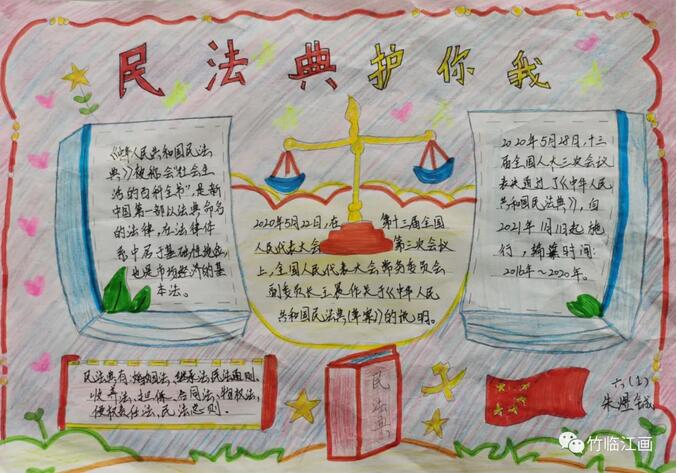 民法典护你我
《中华人民共和国民法
典》被称会"社会生
活的百科全书",是新
中国第一部以法典命名
的法律,在法律体
系中居于基础性地位,
也是市场经济的基
本法。
2020年5月22日,在 第十三届全国
人民代表大会 第三次会议
上,全国人民代表大会常务委员会
副委员长王晨作关于《中华人民
共和国民法典(草案)》的说明。
2020年5月28日,十三
届全国人大三次会议
表决通过了《中华人民
共和国民法典》,自
2021年1月1日起施
行,编纂时间:
2016年~2020年。
民法典有:婚姻法、继承法、民法通则、
收养法、担保、合同法、物权法、
侵权责任法、民法总则。
民法典
六(1)
竹临江画